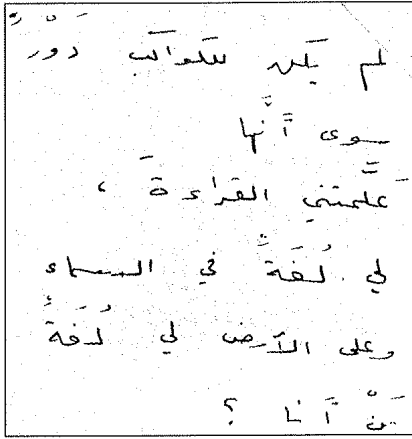 لم يَكُن للكواكب دَوْرٌ
سوى أَنَّها
عَلَّمتني القراءةَ ،
لي لُغَةٌ في السماء
وعلى الأرض لي لُغَةٌ
مَنْ أَنا ؟